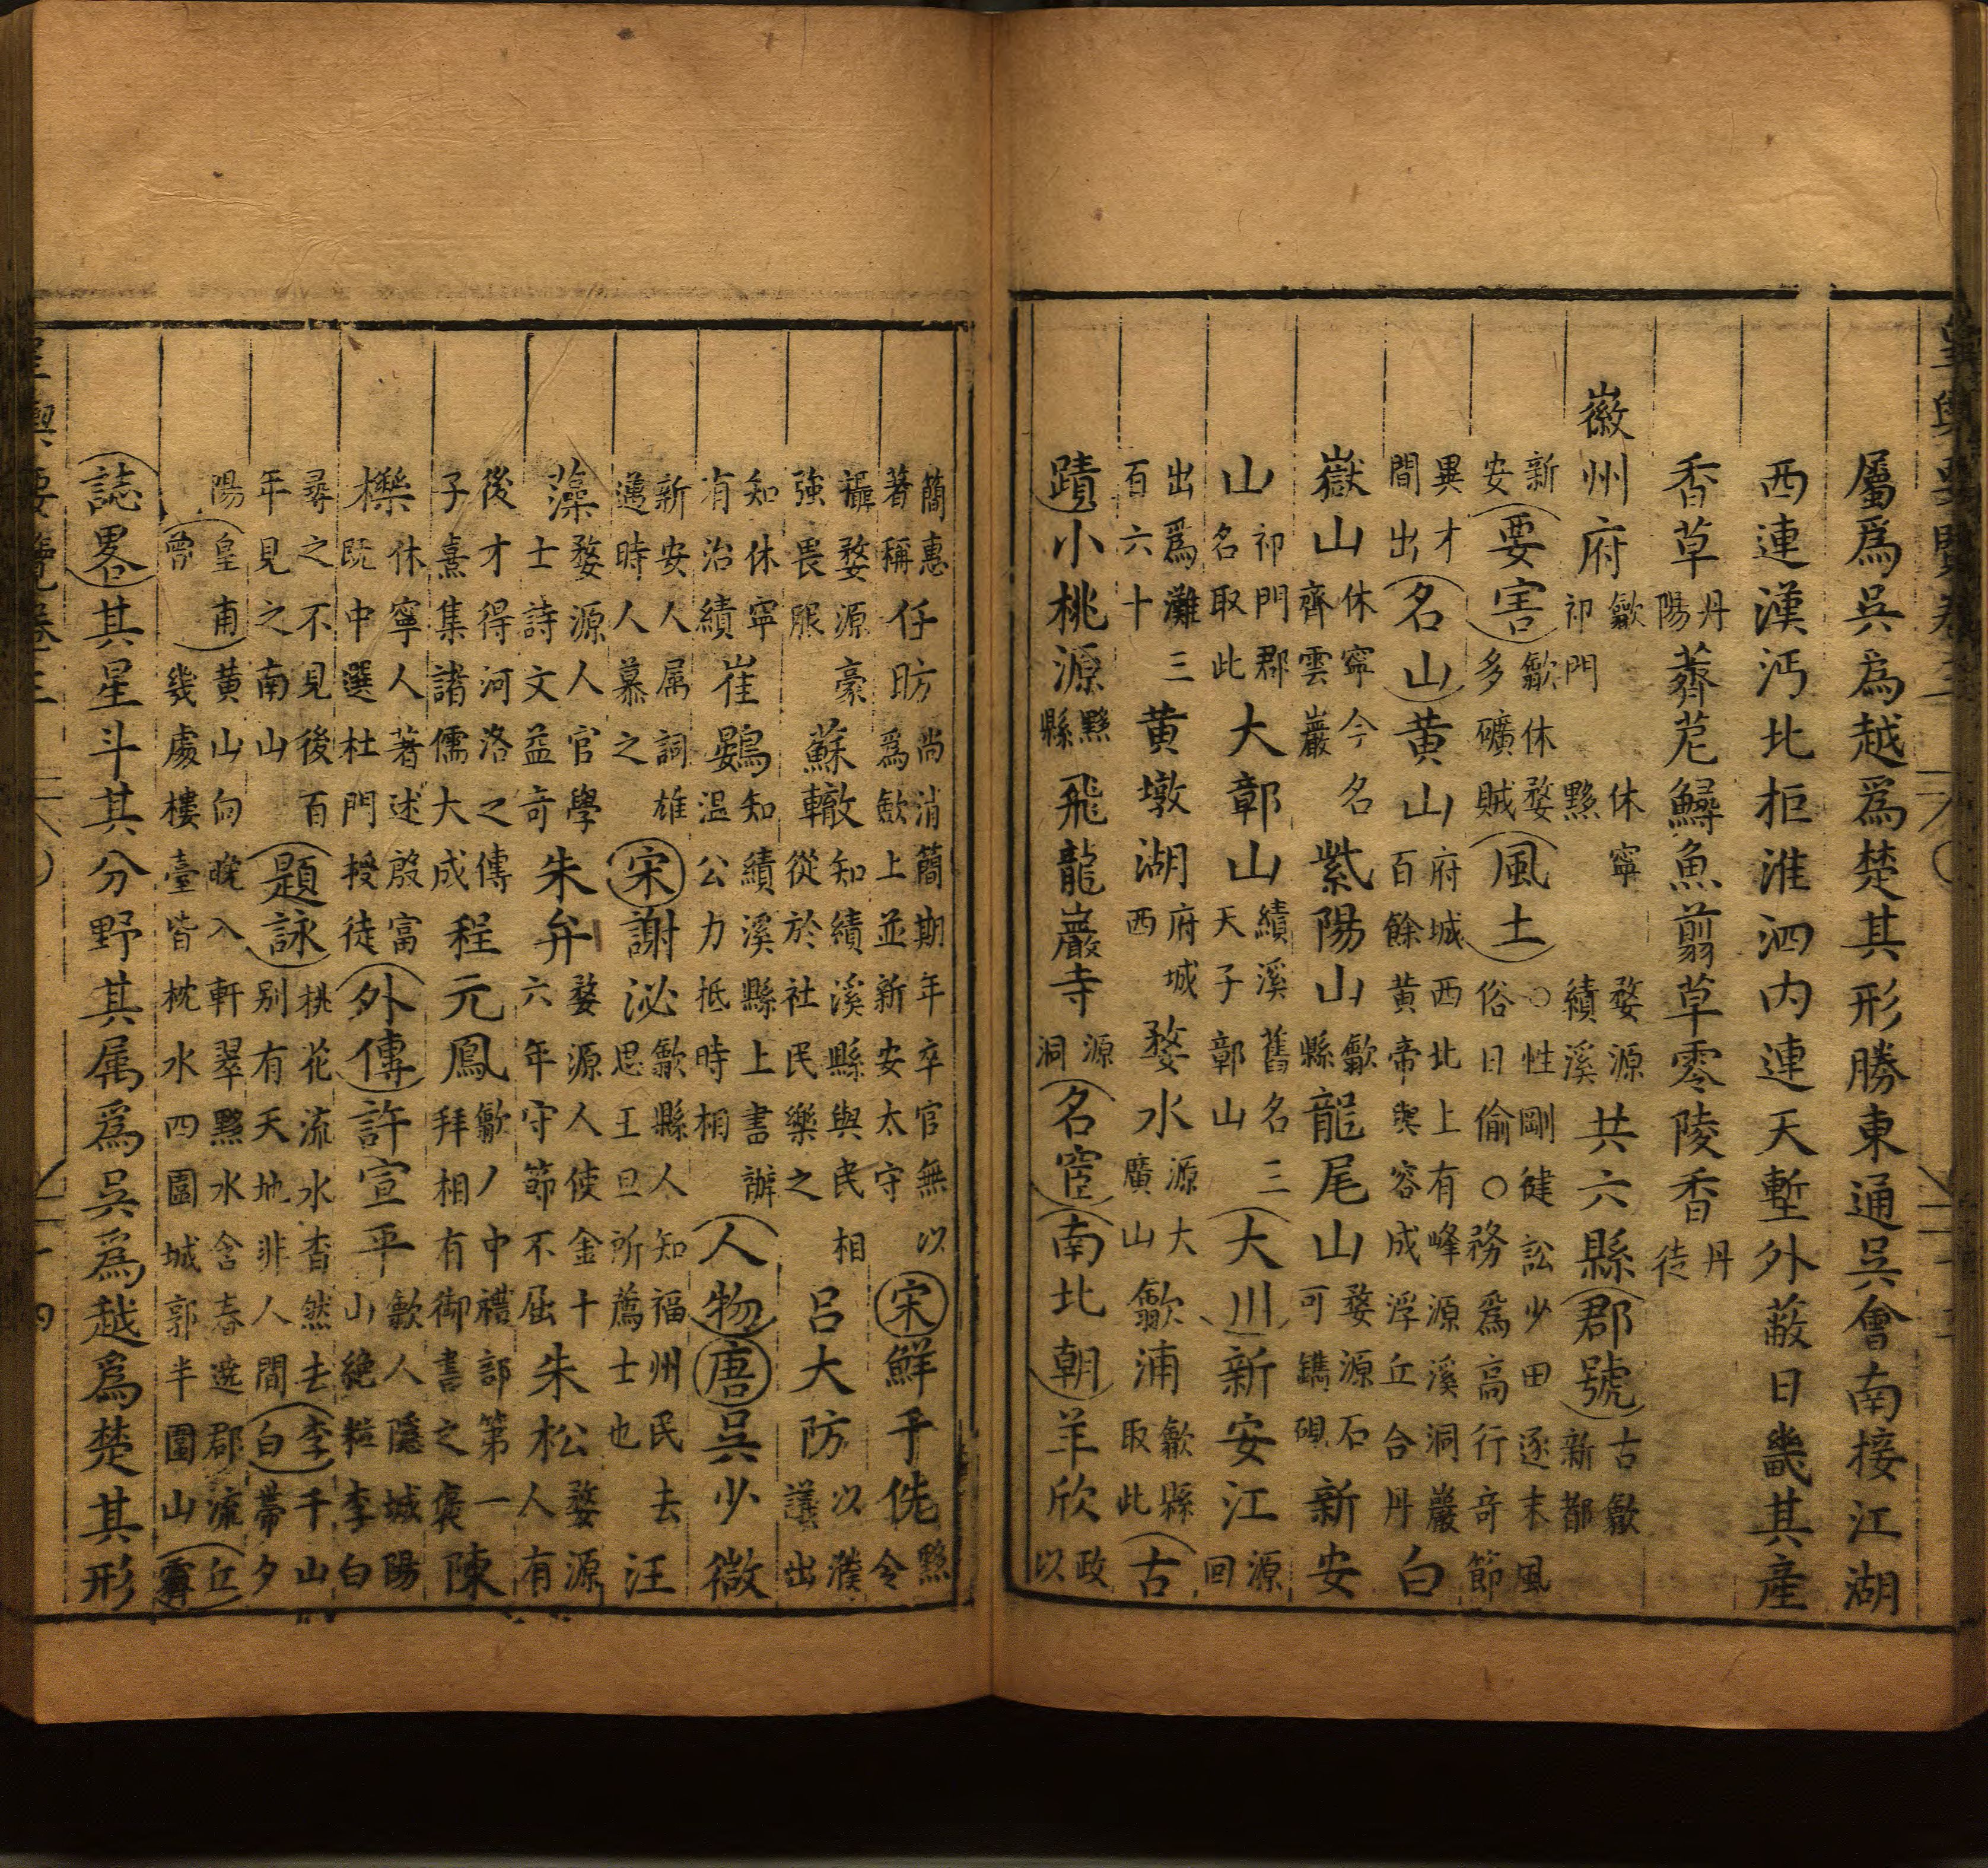 屬爲吳爲越爲楚其形勝東通吳會南接江湖
西連漢沔北拒淮泗内連天塹外蔽日畿其產
香草丹陽薺苨鱘魚翦草零陵香丹徒
徽州府歙休寧婺源祁門黟績溪共六縣郡號古歙新都
新安要害歙休婺多礦賊風土○性剛健訟少田逐末風俗日偷○務爲高行奇節
異才間出名山黄山府城西北上有峰源溪洞巖百餘黄帝與容成浮丘合丹白
嶽山休寧今名齊雲巖紫陽山歙縣龍尾山婺源石可鐫硯新安
山祁門郡名取此大鄣山績溪舊名三天子鄣山大川新安江源回
出爲灘三百六十黄墩湖府城西婺水源大廣山歙浦歙縣取此古
蹟小桃源黟縣飛龍巖寺源洞名宦南北朝羊欣政以
簡惠著稱任昉尚消簡期年卒官無以爲歛上並新安太守宋鮮于侁黟令
攝婺源豪強畏服蘇轍知績溪縣與民相從於社民樂之呂大防以濮議出
知休寧有治績崔鷃知績溪縣上書辦温公力抵時相人物唐吳少微
新安人属詞雄邁時人慕之宋謝泌歙縣人知福州民去思王旦所薦士也汪
藻婺源人官學士詩文益奇朱弁婺源人使金十六年守節不屈朱松婺源人有
後才得河洛之傳子熹集諸儒大成程元鳳歙人中禮部第一拜相有御書之褒陳
櫟休寧人著述殷富既中選杜門授徒外傳許宣平歙人隱城陽山絶粒李白
尋之不見後百年見之南山題詠桃花流水杳然去别有天地非人間李白千山帶夕
陽皇甫曾黄山向晚入軒翠黟水含春遶郡流丘濬幾處樓臺皆枕水四圍城郭半圍山
誌畧其星斗其分野其属爲吳爲越爲楚其形